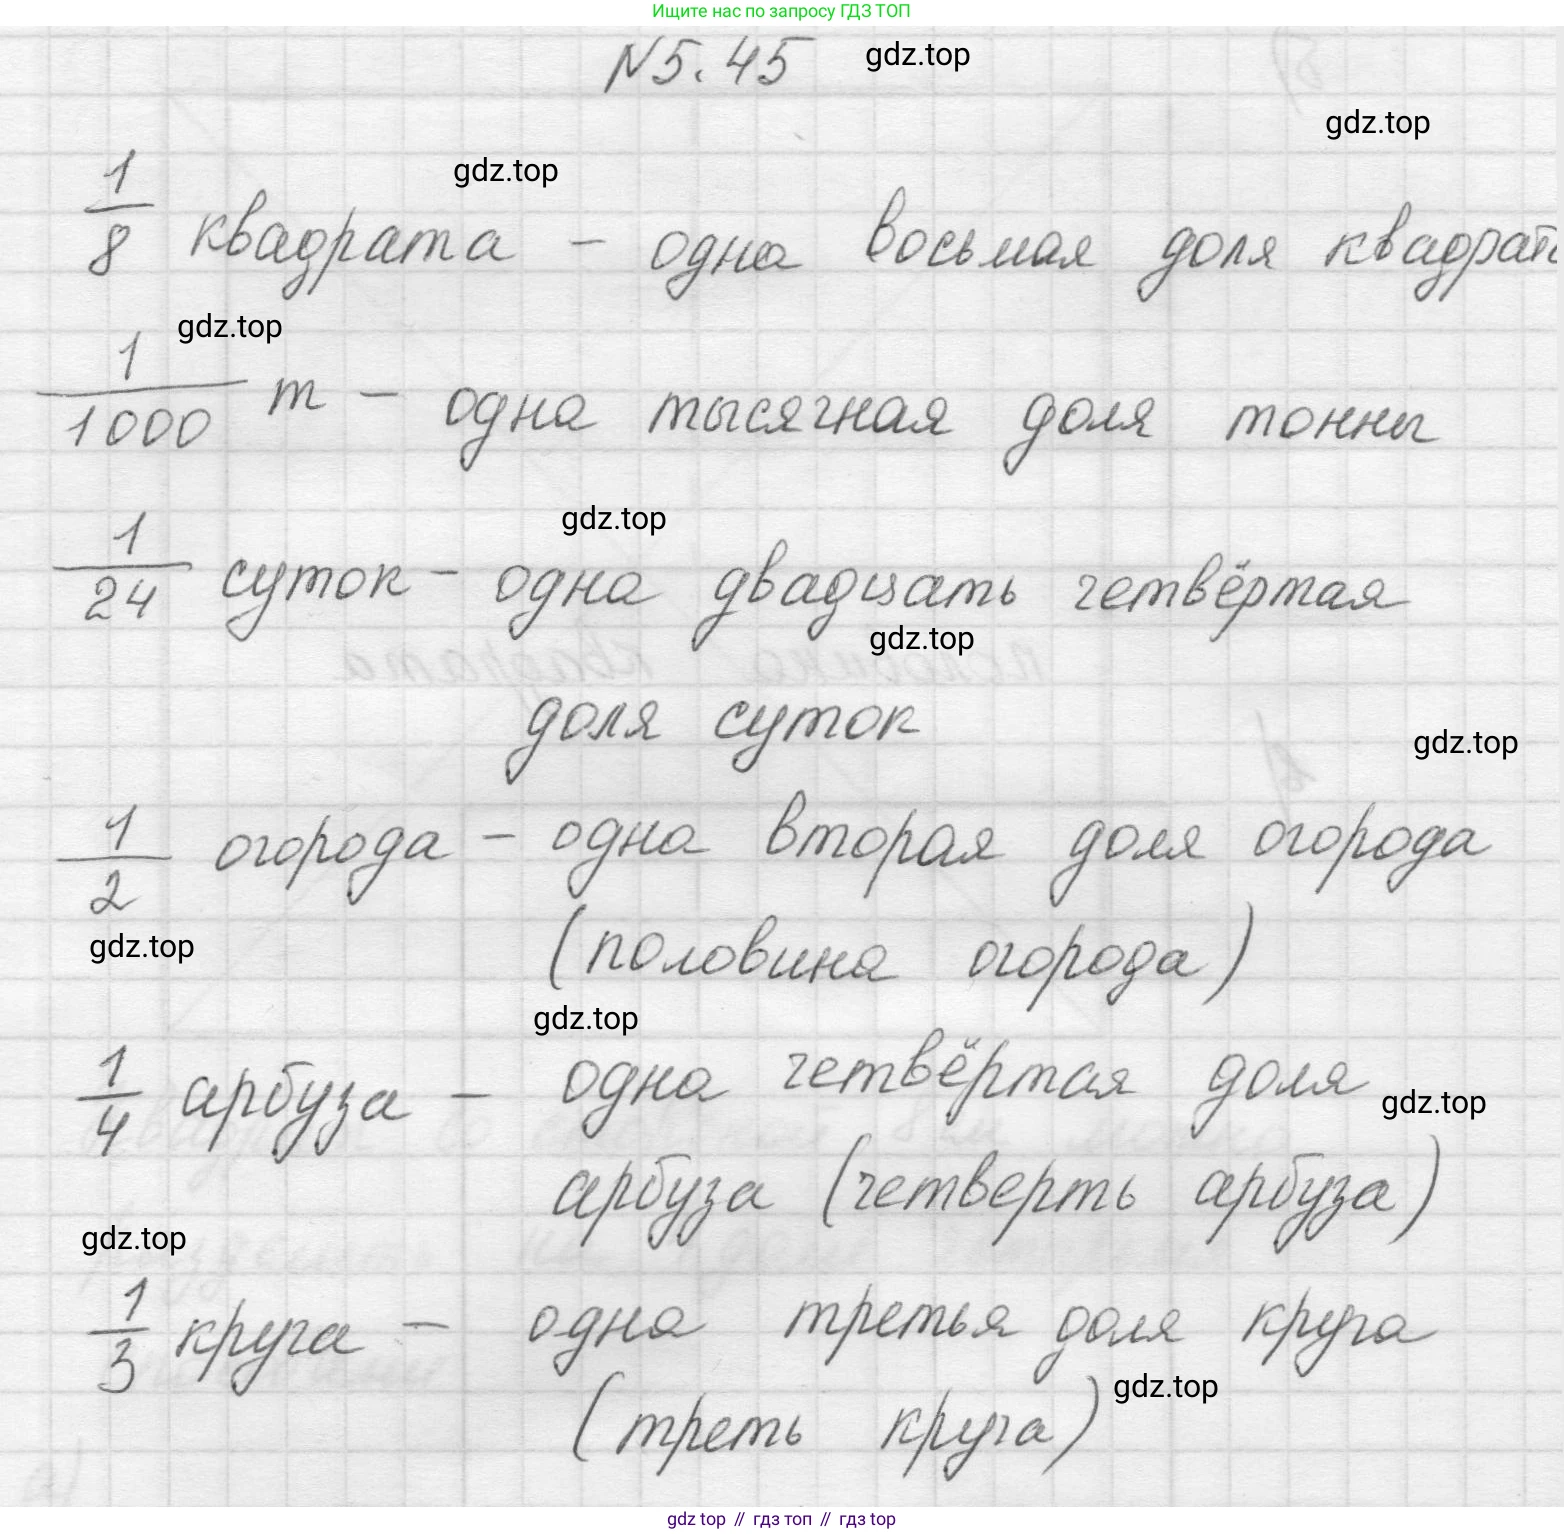 Ищите нас по запросу ГДЗ ТОП
N5.45 gdz.top
gdz.top
gdz.top
1/8 квадрата – одна восьмая доля квадрат
gdz.top
1/1000 т – одна тысячная доля тонны
gdz.top
1/24 суток – одна двадцать четвёртая
gdz.top
доля суток
gdz.top
1/2 огорода – одна вторая доля огорода
gdz.top
(половина огорода)
gdz.top
1/4 арбуза – одна четвёртая доля
gdz.top
арбуза (четверть арбуза)
gdz.top
1/3 круга – одна третья доля круга
gdz.top
(треть круга)
gdz top // гдз топ // гдз top